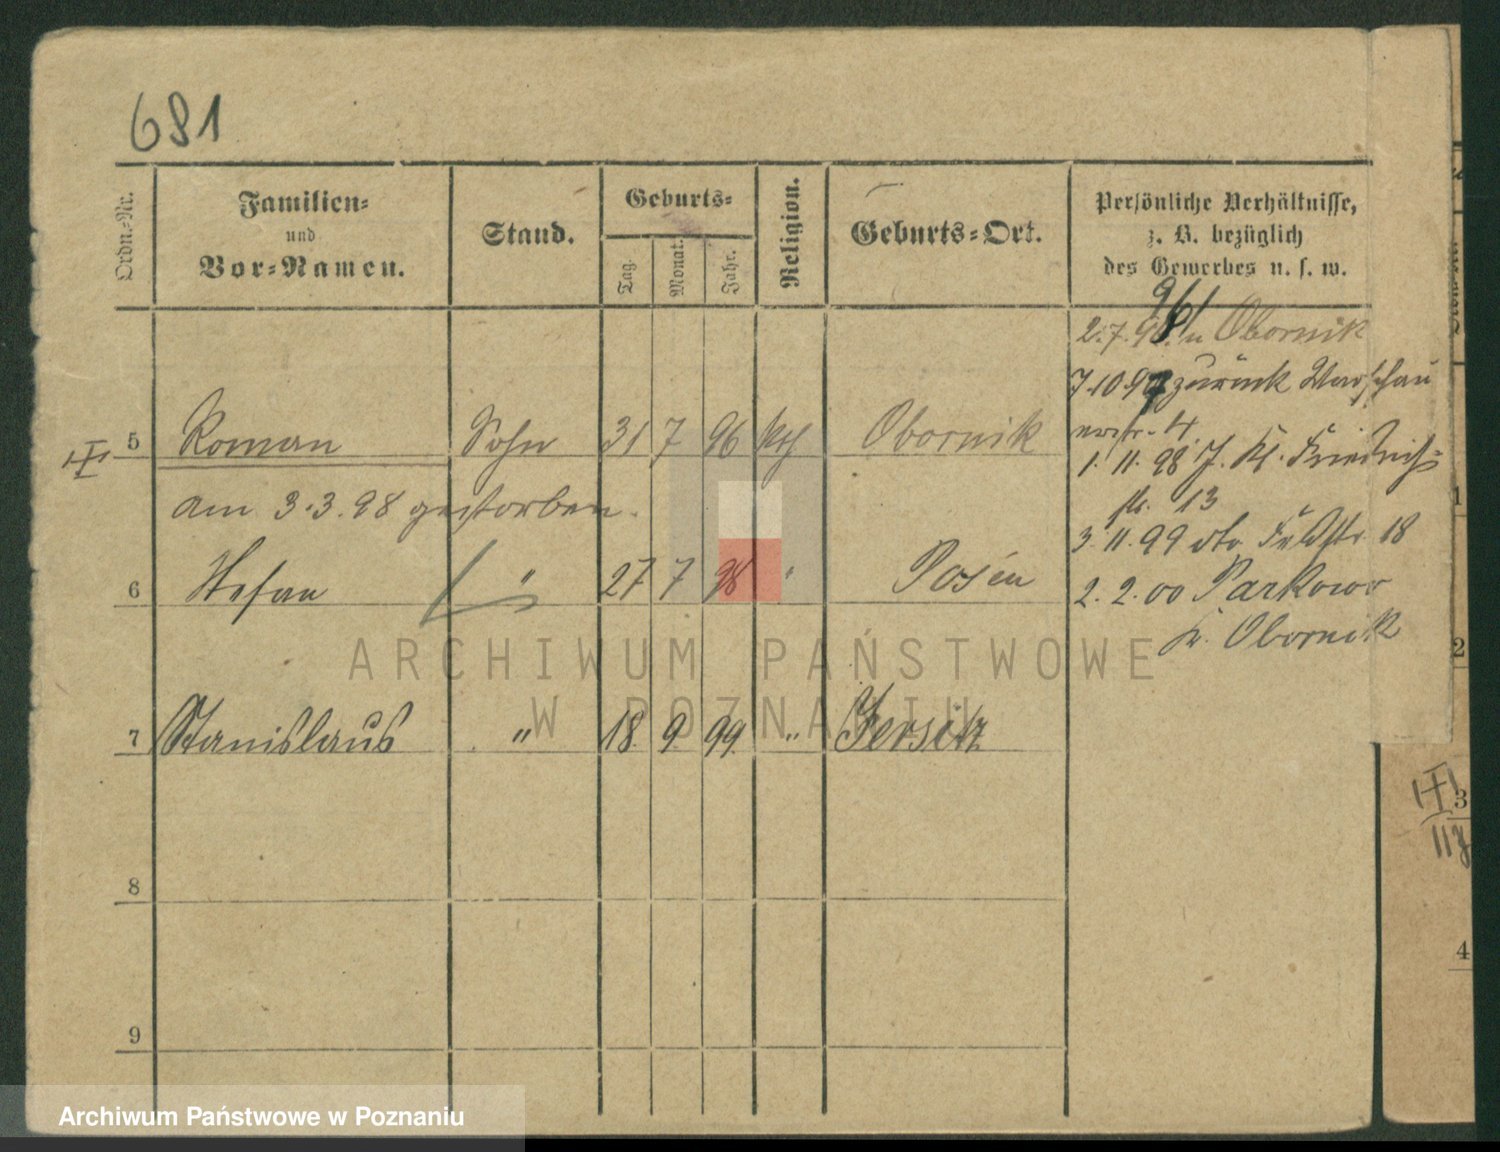 681
Ordn.-Nr.
Familien-
und
Vor-Namen.
Stand.
Geburts-
Tag.
Monat.
Jahr.
Religion.
Geburts-Ort.
Persönliche Verhältnisse,
z. B. bezüglich
des Gewerbes u. s. w.
5 Roman Sohn 31 7 96 kth Obornik
am 3.3.98 gestorben.
6 Stefan " 27 7 98 " Posen
7 Stanislaus " 18. 9. 99. " Jersitz
8
9
2.7.96 n Obornik
7.10.97 zurück Warschau
erstr. 4
1. 11. 98 J. Kl. Friedrich-
str. 13
3. 11. 99 dto Feldstr 18
2. 2. 00 Parkowo
Kr. Obornik
1
2
3
4
ARCHIWUM PAŃSTWOWE
W POZNANIU
Archiwum Państwowe w Poznaniu